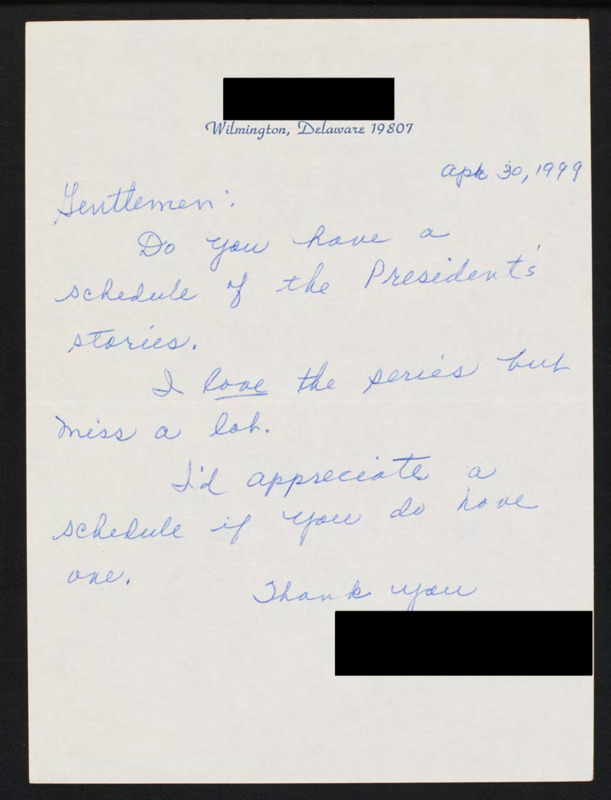 Wilmington, Delaware 19807
Apr 30, 1999
Gentlemen:
Do you have a
schedule of the President's
stories.
I love the series but
miss a lot.
I'd appreciate a
schedule if you do have
one.
Thank you